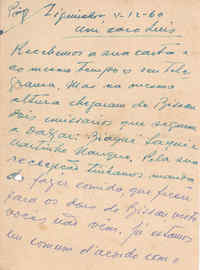 Ziguinchor, 4-12-60
meu caro Luís
Recebemos a sua carta e
ao mesmo tempo o seu tele
grama. Mas na mesma
altura chegaram de Bissau
dois emissários que seguem
a Dakar:
Martinho Pela sua
recepção tínhamos mandado
de fazer comida, que ficou
para os dois de Bissau visto
vocês não vêm. Já estamos
em comum d'acordo com o